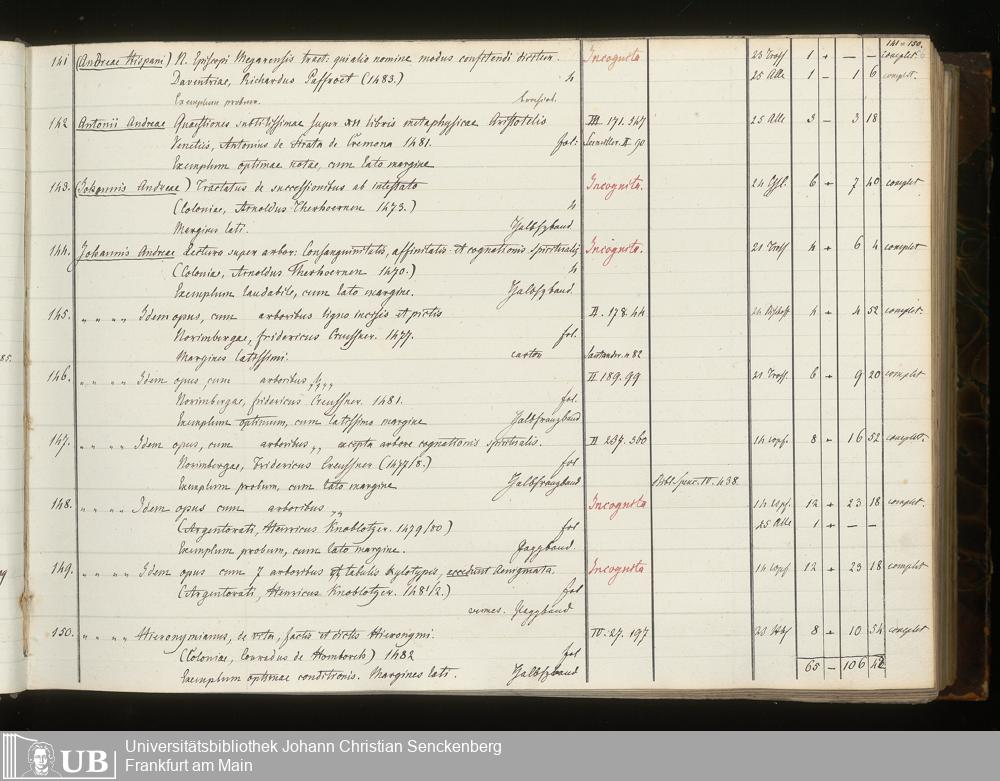 141-150.
141 (Andreae Hispani) N. Episcopi Megarensis tract: qui alio nomine modus confitendi dicitur. Incognita 23 Tross 1 + — — complet.
Daventriae, Richardus Paffroet (1483.) 4 25 Alle 1 - 1 6 complet.
Exemplum probum.
142 Antonii Andreae Quaestiones subtilissimae super XII libris metaphysicae Aristotelis III. 171. 347 25 Alle 3 - 3 18
Venetiis, Antonius de Strata de Cremona 1481. fol: II. 90
Exemplum optimae notae, cum lato margine
143. (Johannis Andreae) Tractatus de successionibus ab intestato Incognita. 24 6 + 7 40 complet
(Coloniae, Arnoldus Therhoernen 1473.) 4
Margines lati. Halbfzband
144. Johannis Andreae Lectura super arbor: Consanguinitatis, affinitatis et cognationis spiritualis Incognita. 21 Tross 4 + 6 4 complet
(Coloniae, Arnoldus Therhoernen 1470.) 4
Exemplum laudabile, cum lato margine. Halbfzband.
145. " " " " Idem opus, cum arboribus ligno incisis et pictis II. 178. 44 4 + 4 52 complet.
Norimbergae, fridericus Creussner. 1477. fol.
Margines latissimi. carton Santander. n 82
146. " " " " Idem opus cum arboribus " " " II. 189. 99 21 Tross. 6 + 9 20 complet
Norimbergae, fridericus Creussner. 1481. fol.
Exemplum optimum, cum latissimo margine Halbfranzband
147. " " " " Idem opus, cum arboribus " " excepta arbore cognationis spiritualis. II 237. 360 8 + 16 52 complet.
Norimbergae, Fridericus Creussner (1477/8.) fol
Exemplum probum, cum lato margine Halbfranzband Bibl. Spenc. IV. 438.
148. " " " " Idem opus cum arboribus " " Incognita 12 + 23 18 complet
(Argentorati, Henricus Knoblotzer. 1479/80) fol 25 Alle 1 + — —
Exemplum probum, cum lato margine. Pappband.
149. " " " " Idem opus cum 7 arboribus et tabulis Xylotypis, accedunt Aenigmata. Incognita 12 + 23 18 complet
(Argentorati, Henricus Knoblotzer. 1481/2.) fol
vermes. Pappband
150. " " " " Hieronymianus, de vita, factis et dictis Hieronymi. IV. 27. 197 8 + 10 54 complet
(Coloniae, Conradus de Homborch) 1482 fol
Exemplum optimae conditionis. Margines lati. Halbfzband
65 — 106 42
85.
UB Universitätsbibliothek Johann Christian Senckenberg
Frankfurt am Main